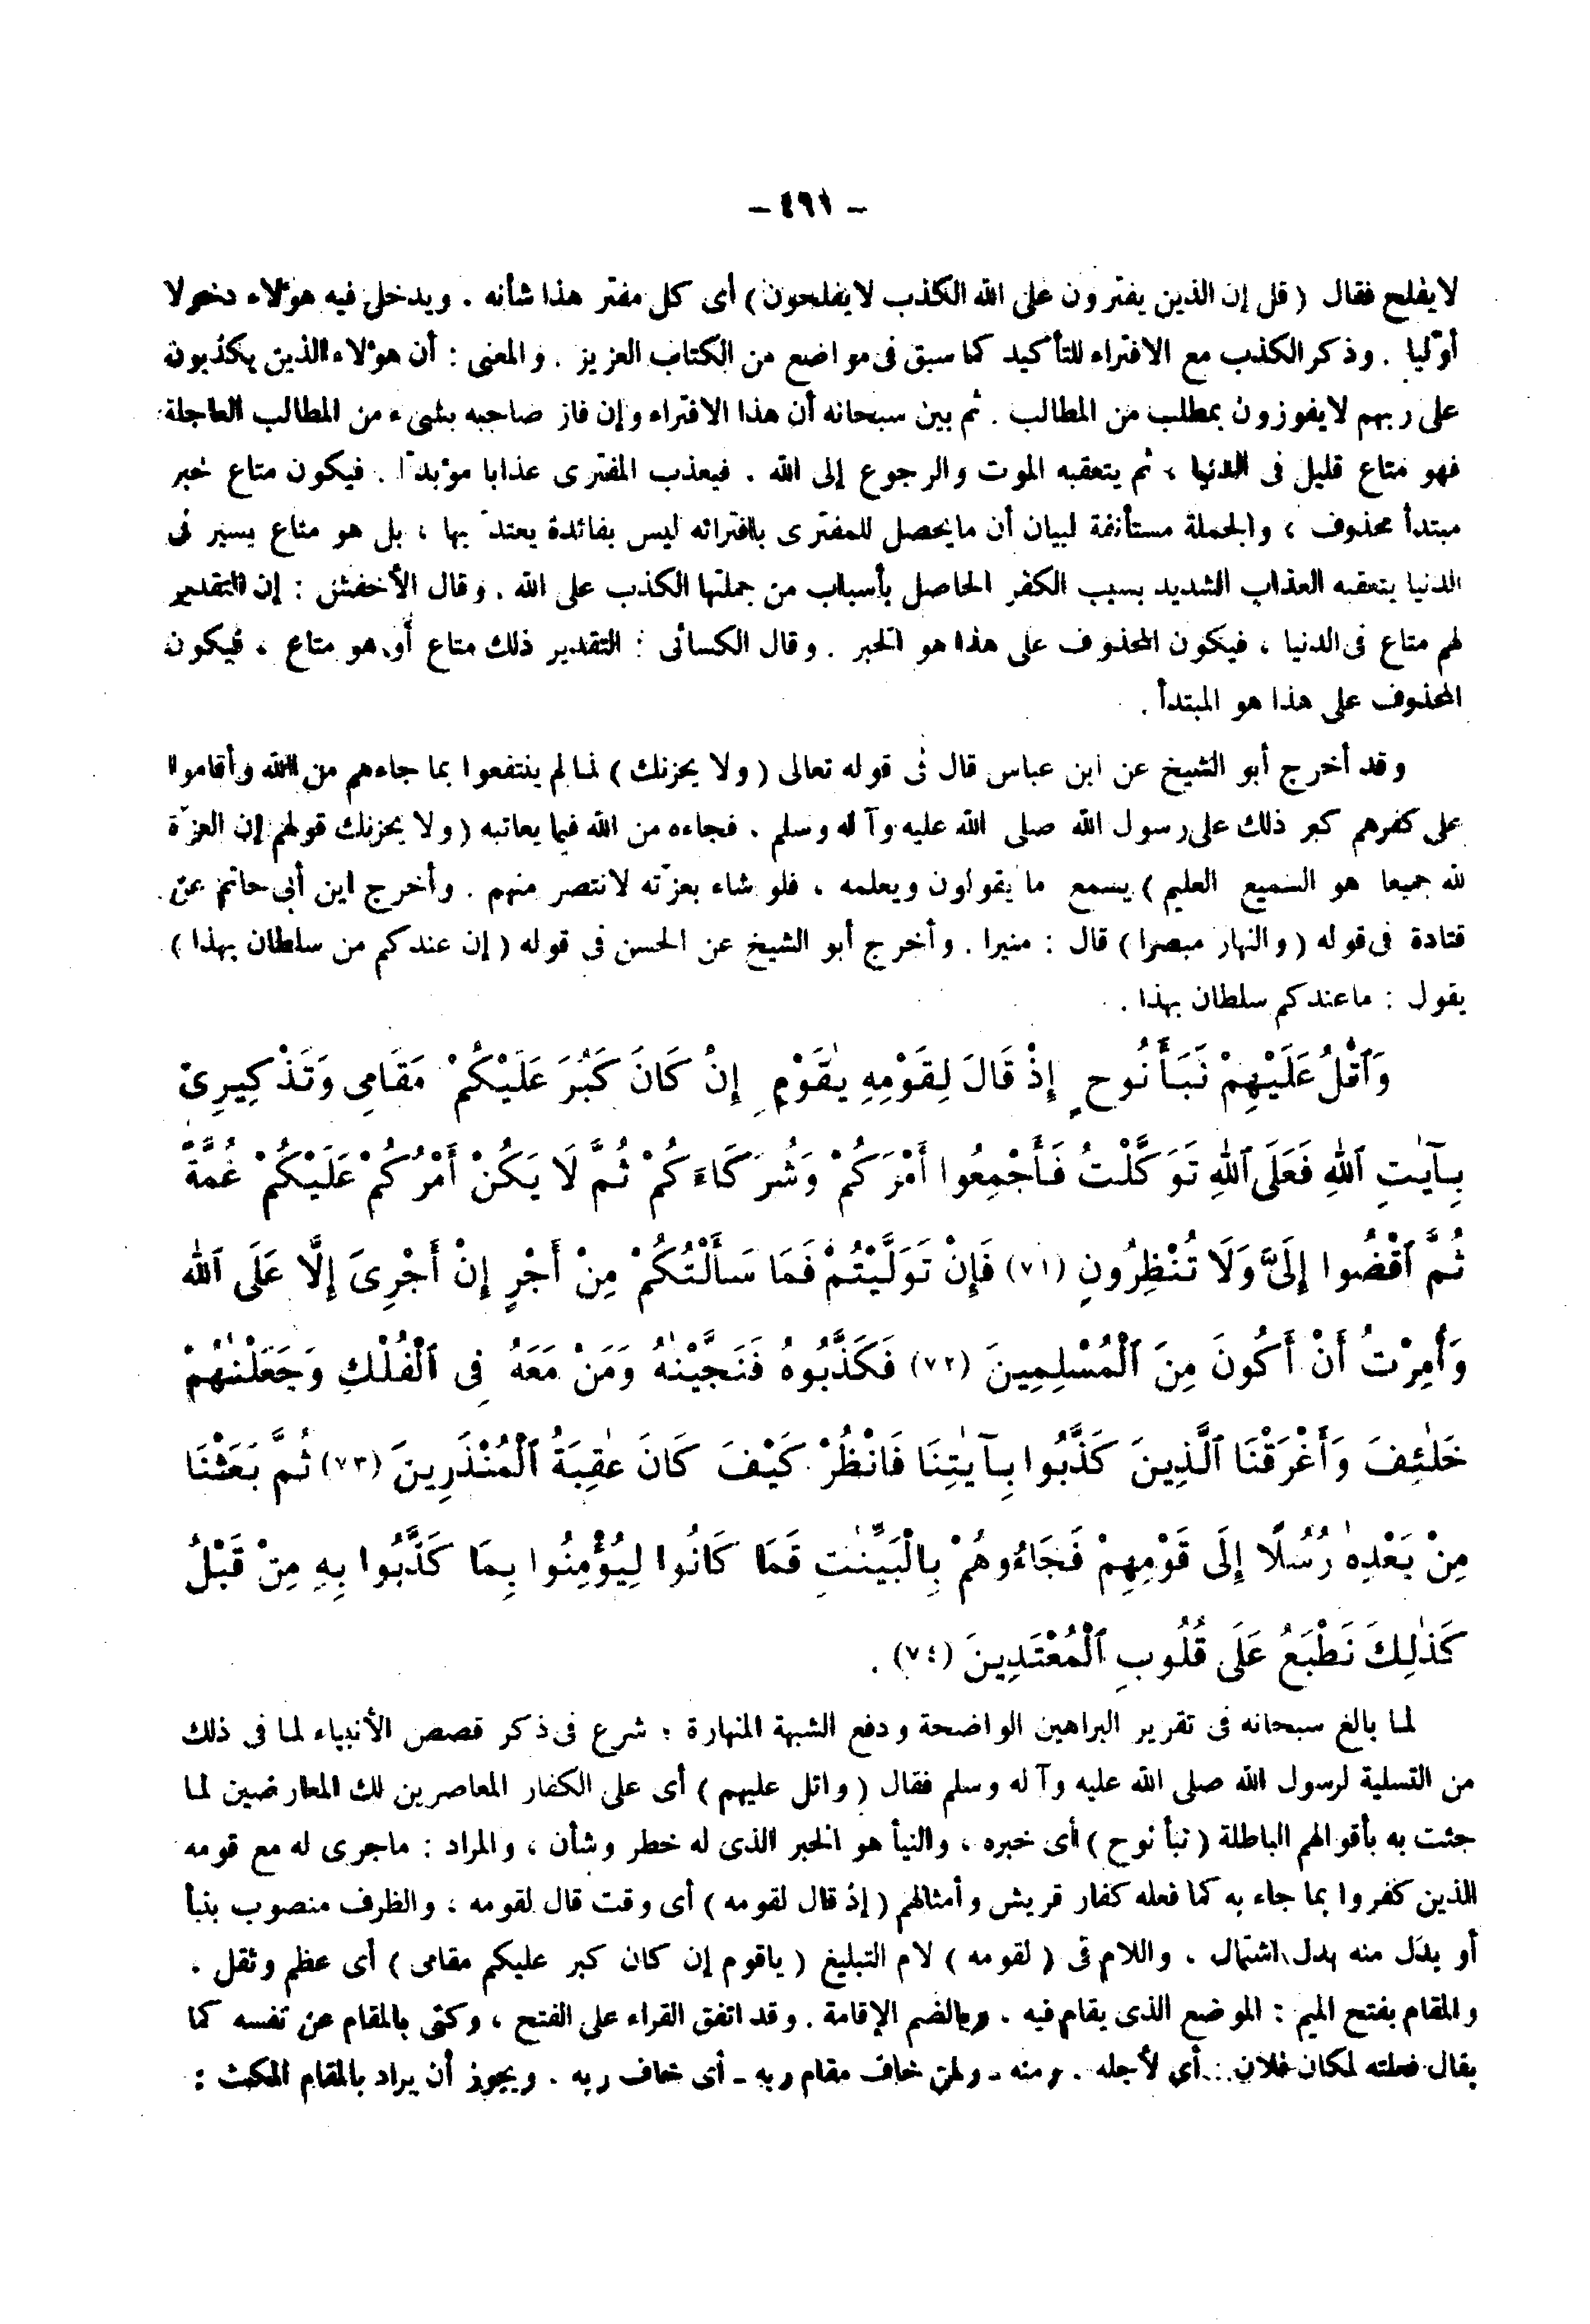 – ٤٦١ –
لا يفلح فقال ( قل إن الذين يفترون على الله الكذب لا يفلحون ) أى كل مفتر هذا شأنه . ويدخل فيه هؤلاء دخولا
أوّليا . وذكر الكذب مع الافتراء للتأكيد كما سبق فى مواضع من الكتاب العزيز . والمعنى : أن هؤلاء الذين يكذبون
على ربهم لا يفوزون بمطلب من المطالب . ثم بين سبحانه أن هذا الافتراء وإن فاز صاحبه بشىء من المطالب العاجلة
فهو متاع قليل فى الدنيا ، ثم يتعقبه الموت والرجوع إلى الله . فيعذب المفترى عذابا مؤبدّا . فيكون متاع خبر
مبتدأ محذوف ، والجملة مستأنفة لبيان أن ما يحصل للمفترى بافترائه ليس بفائدة يعتدّ بها ، بل هو متاع يسير فى
الدنيا يتعقبه العذاب الشديد بسبب الكفر الحاصل بأسباب من جملتها الكذب على الله . وقال الأخفش : إن التقدير
لهم متاع فى الدنيا ، فيكون المحذوف على هذا هو الخبر . وقال الكسائى : التقدير ذلك متاع أو هو متاع ، فيكون
المحذوف على هذا هو المبتدأ .
وقد أخرج أبو الشيخ عن ابن عباس قال فى قوله تعالى ( ولا يحزنك ) لما لم ينتفعوا بما جاءهم من الله وأقاموا
على كفرهم كبر ذلك على رسول الله صلى الله عليه وآله وسلم . فجاءه من الله فيما يعاتبه ( ولا يحزنك قولهم إن العزّة
لله جميعا هو السميع العليم ) يسمع ما يقولون ويعلمه ، فلو شاء بعزّته لانتصر منهم . وأخرج ابن أبى حاتم عن
قتادة فى قوله ( والنهار مبصرا ) قال : منيرا . وأخرج أبو الشيخ عن الحسن فى قوله ( إن عندكم من سلطان بهذا )
يقول : ما عندكم سلطان بهذا .
وَٱتْلُ عَلَيْهِمْ نَبَأَ نُوحٍ إِذْ قَالَ لِقَوْمِهِ يٰقَوْمِ إِنْ كَانَ كَبُرَ عَلَيْكُمْ مَقَامِى وَتَذْكِيرِى
بِـَٔايٰتِ ٱللهِ فَعَلَى ٱللهِ تَوَكَّلْتُ فَأَجْمِعُوا أَمْرَكُمْ وَشُرَكَاءَكُمْ ثُمَّ لَا يَكُنْ أَمْرُكُمْ عَلَيْكُمْ غُمَّةً
ثُمَّ ٱقْضُوا إِلَىَّ وَلَا تُنْظِرُونِ (٧١) فَإِنْ تَوَلَّيْتُمْ فَمَا سَأَلْتُكُمْ مِنْ أَجْرٍ إِنْ أَجْرِىَ إِلَّا عَلَى ٱللهِ
وَأُمِرْتُ أَنْ أَكُونَ مِنَ ٱلْمُسْلِمِينَ (٧٢) فَكَذَّبُوهُ فَنَجَّيْنٰهُ وَمَنْ مَعَهُ فِى ٱلْفُلْكِ وَجَعَلْنٰهُمْ
خَلٰئِفَ وَأَغْرَقْنَا ٱلَّذِينَ كَذَّبُوا بِـَٔايٰتِنَا فَانْظُرْ كَيْفَ كَانَ عٰقِبَةُ ٱلْمُنْذَرِينَ (٧٣) ثُمَّ بَعَثْنَا
مِنْ بَعْدِهِ رُسُلًا إِلَى قَوْمِهِمْ فَجَاءُوهُمْ بِالْبَيِّنٰتِ فَمَا كَانُوا لِيُؤْمِنُوا بِمَا كَذَّبُوا بِهِ مِنْ قَبْلُ
كَذٰلِكَ نَطْبَعُ عَلَى قُلُوبِ ٱلْمُعْتَدِينَ (٧٤) .
لما بالغ سبحانه فى تقرير البراهين الواضحة ودفع الشبهة المنهارة ؛ شرع فى ذكر قصص الأنبياء لما فى ذلك
من التسلية لرسول الله صلى الله عليه وآله وسلم فقال ( واتل عليهم ) أى على الكفار المعاصرين لك المعارضين لما
جئت به بأقوالهم الباطلة ( نبأ نوح ) أى خبره ، والنبأ هو الخبر الذى له خطر وشأن ، والمراد : ماجرى له مع قومه
الذين كفروا بما جاء به كما فعله كفار قريش وأمثالهم ( إذ قال لقومه ) أى وقت قال لقومه ، والظرف منصوب بنبأ
أو بدل منه بدل اشتمال . واللام فى ( لقومه ) لام التبليغ ( ياقوم إن كان كبر عليكم مقامى ) أى عظم وثقل .
والمقام بفتح الميم : الموضع الذى يقام فيه . وبالضم الإقامة . وقد اتفق القراء على الفتح ، وكنى بالمقام عن نفسه كما
يقال فعلته لمكان فلان : أى لأجله . ومنه - ولمن خاف مقام ربه - أى خاف ربه . ويجوز أن يراد بالمقام المكث :